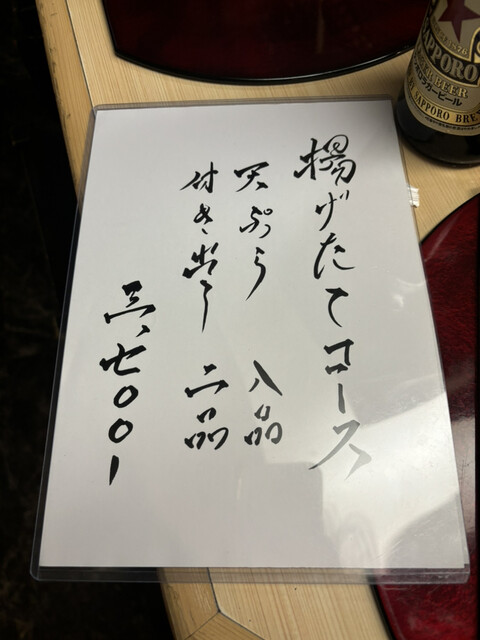 揚げたてコース
天ぷら 八品
付き出し 二品
三、七〇〇ー
SAPPORO
LAGER BEER
ラガービール
SAPPORO BRE